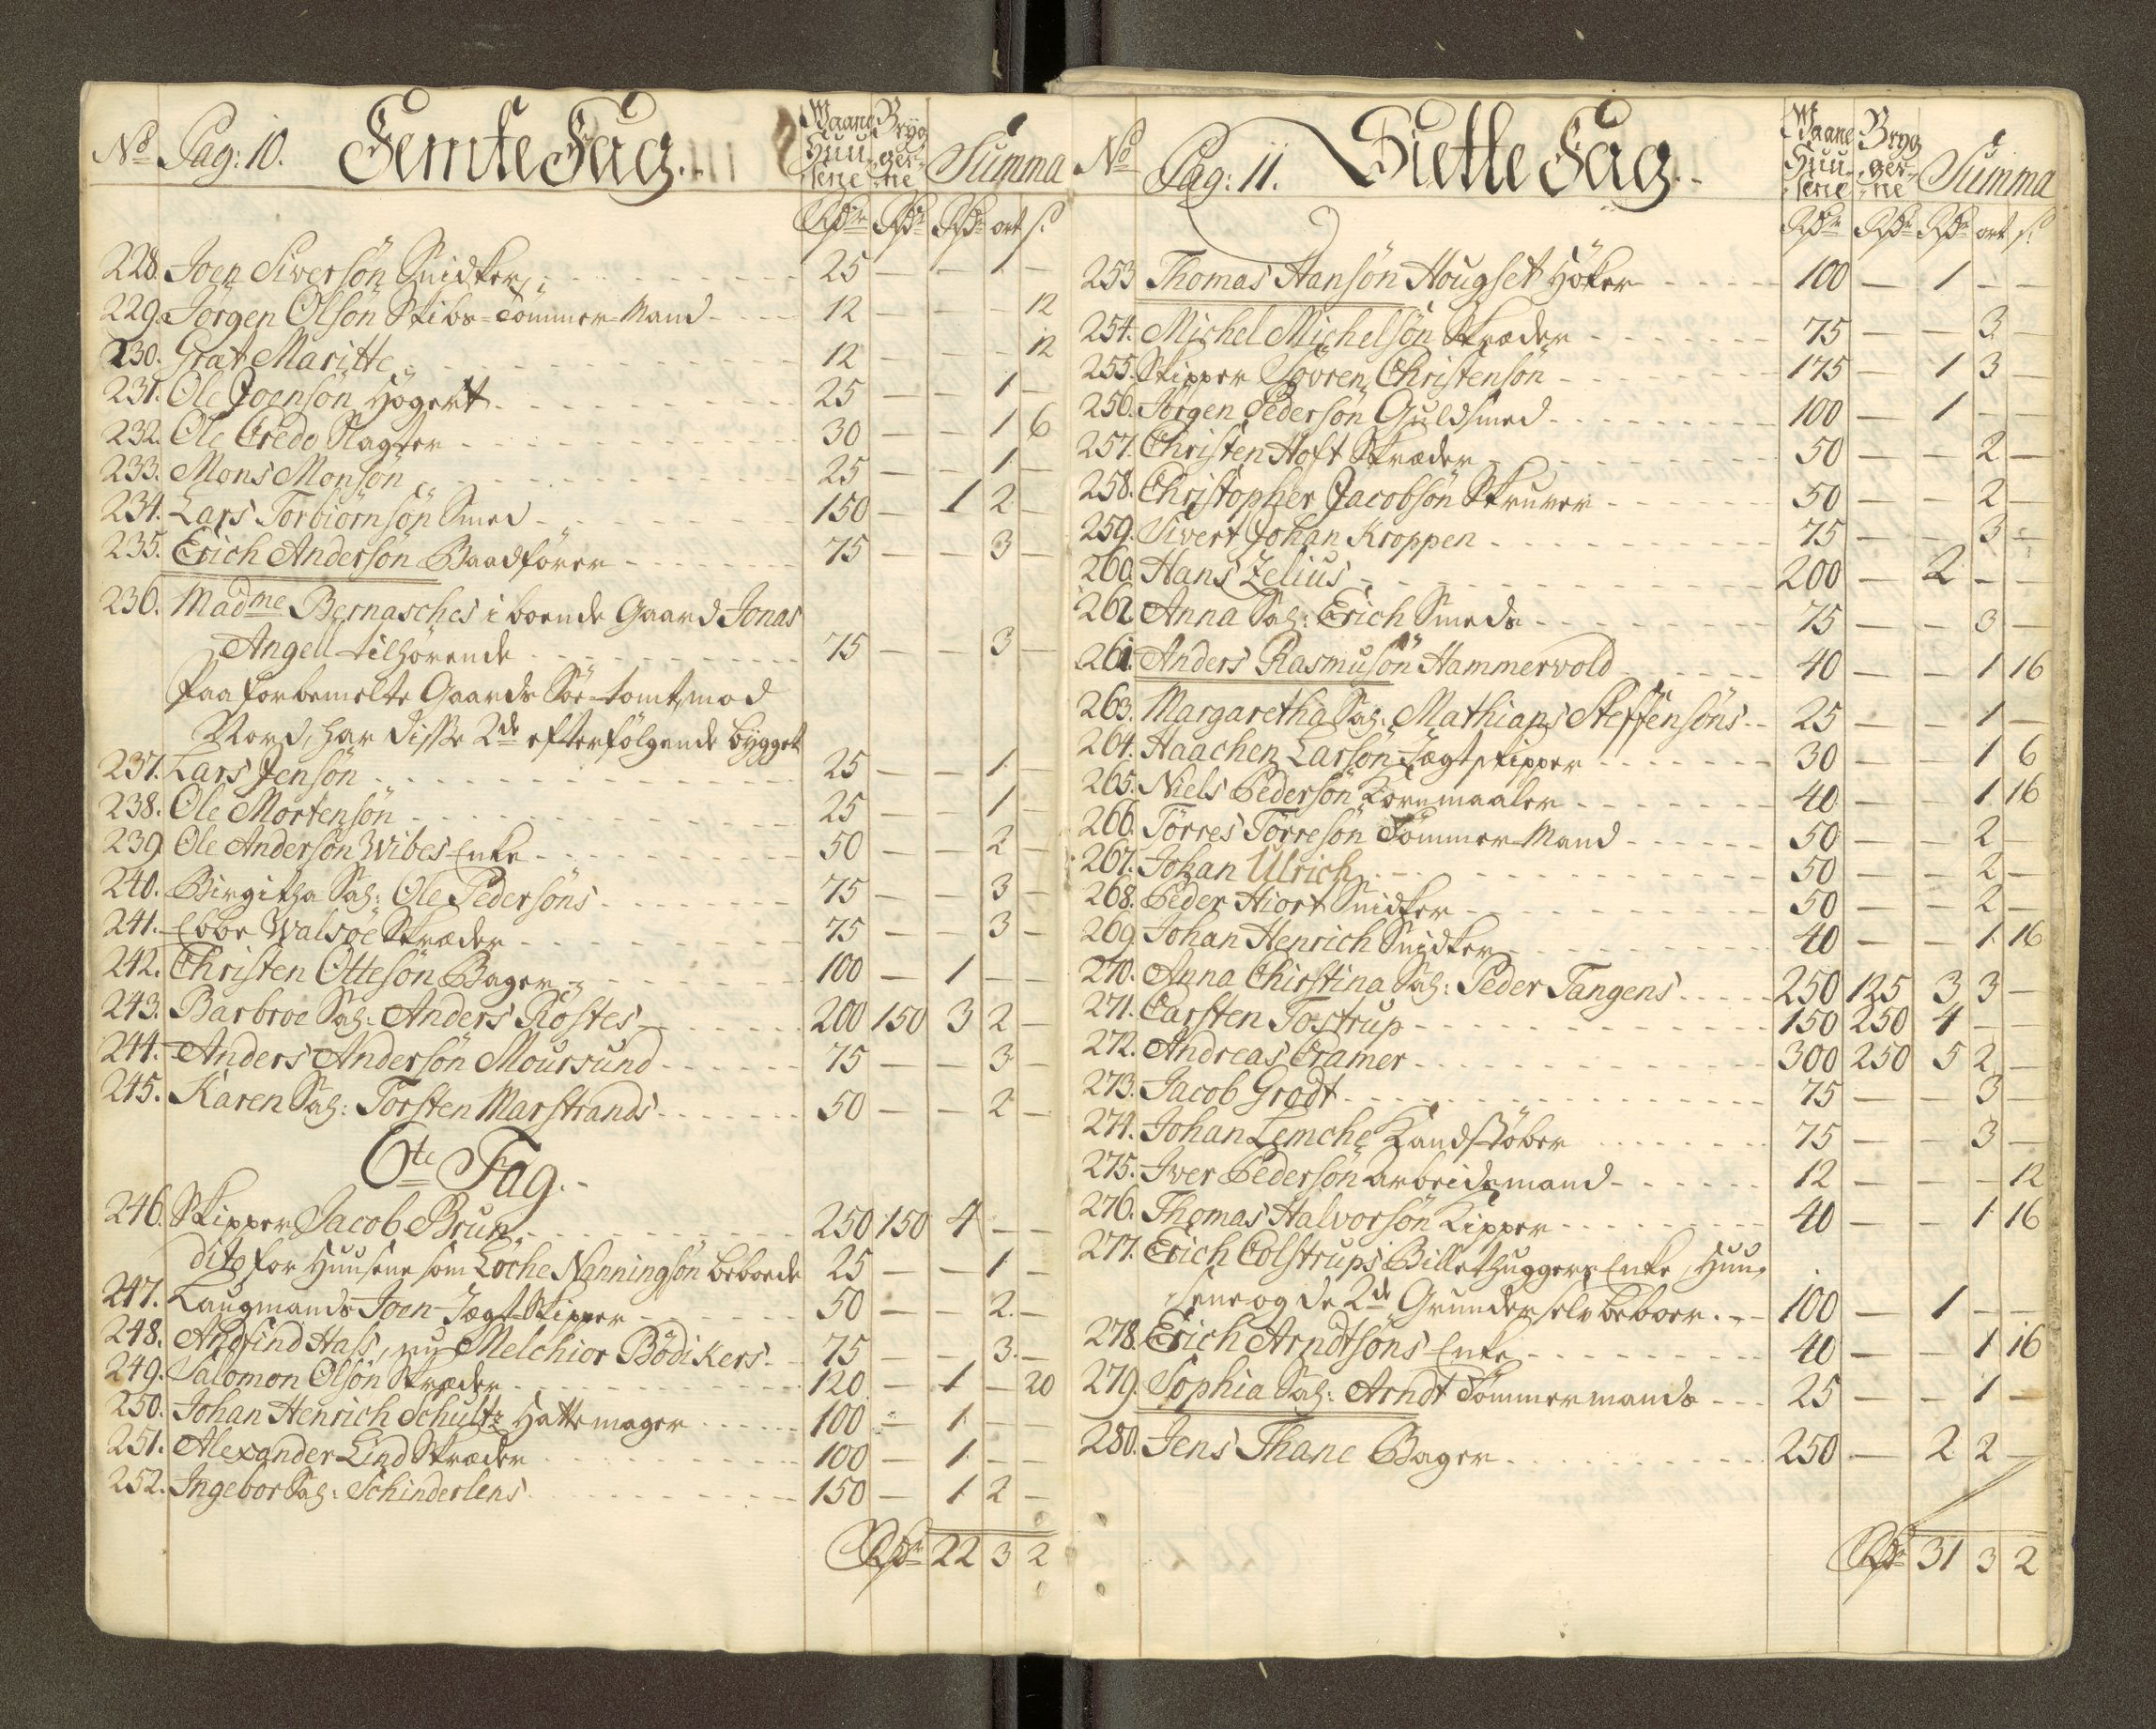 No Pag: 10. Femte Fag. Waane Huu- serne Bryg ger- ne Summa
Rdr Rdr Rdr ort s.
228. Joen Siversön Snidker 25 — — 1 —
229. Jörgen Olsön Skibs-Tömmer-Mand 12 — — — 12
230. Graat Maritte 12 — — — 12
231. Ole Joensön Högert 25 — — 1 —
232. Ole Credo Slagter 30 — — 1 6
233. Mons Monsön 25 — — 1 —
234. Lars Torbiörnsön Smed 150 — 1 2 —
235. Erich Andersön Baadförer 75 — — 3 —
236. Madme Bernasches iboende Gaard Jonas
Angell tilhörende 75 — — 3 —
Paa forbemelte Gaards Söe-tomt, mod
Nord, har disse 2de efterfölgende bygget
237. Lars Jensön 25 — — 1 —
238. Ole Mortensön 25 — — 1 —
239 Ole Andersön Wibes Enke 50 — — 2 —
240. Birgitha Sal: Ole Pedersöns 75 — — 3 —
241. Ebbe Walsöe Skræder 75 — — 3 —
242. Christen Ottesön Bager 100 — 1 — —
243. Barbroe Sal: Anders Röstes 200 150 3 2 —
244. Anders Andersön Moursund 75 — — 3 —
245. Karen Sal: Torsten Marstrands 50 — — 2 —
6te Fag.
246. Skipper Jacob Brun 250 150 4 — —
dito for Huusene som Löche Nanningsön beboede 25 — — 1 —
247. Laugmands Joen Jægt-Skipper 50 — — 2 —
248. Andfind Hass, nu Melchior Bödikers 75 — — 3 —
249. Salomon Olsön Skræder 120 — 1 — 20
250. Johan Henrich Schultz Hattemager 100 — 1 — —
251. Alexander Lind Skræder 100 — 1 — —
252. Ingebor Sal: Schinderlens 150 — 1 2 —
Rdr 22 3 2
No Pag: 11. Siette Fag. Waane Huu- serne Bryg ger- ne Summa
Rdr Rdr Rdr ort s.
253 Thomas Hansön Hougset Höker 100 — 1 — —
254. Michel Michelsön Skræder 75 — — 3 —
255. Skipper Sövren Christensön 175 — 1 3 —
256. Jörgen Pedersön Guldsmed 100 — 1 — —
257. Christen Hoft Skræder 50 — — 2 —
258. Christopher Jacobsön Skruver 50 — — 2 —
259. Sivert Johan Kroppen 75 — — 3 —
260. Hans Zelius 200 — 2 — —
262 Anna Sal: Erich Smeds 75 — — 3 —
261. Anders Rasmusön Hammervold 40 — — 1 16
263. Margaretha Sal: Mathias Steffensöns 25 — — 1 —
264. Haachen Larsön Jægtskipper 30 — — 1 6
265. Niels Pedersön Kornmaaler 40 — — 1 16
266. Törres Törresön Tömmer-Mand 50 — — 2 —
267. Johan Ulrich 50 — — 2 —
268. Peder Hiort Snidker 50 — — 2 —
269. Johan Henrich Snidker 40 — — 1 16
270. Anna Chirstina Sal: Peder Tangens 250 125 3 3 —
271. Carsten Tostrup 150 250 4 — —
272. Andreas Cramer 300 250 5 2 —
273. Jacob Grodt 75 — — 3 —
274. Johan Lemche Kandstöber 75 — — 3 —
275. Iver Pedersön arbeidsmand 12 — — — 12
276. Thomas Halvorsön Kipper 40 — — 1 16
277. Erich Colstrups Billethuggers Enke, Huu-
sene og de 2de Grunder selv beboer 100 — 1 — —
278. Erich Arndtsöns Enke 40 — — 1 16
279. Sophia Sal: Arndt Tömmermands 25 — — 1 —
280. Jens Thane Bager 250 — 2 2 —
Rdr 31 3 2